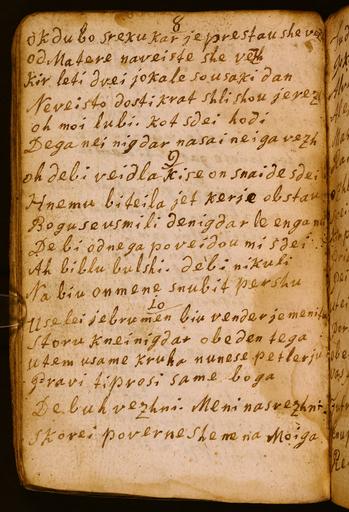 8
ok du bo sreku kar je prestau she vezh
od Matere naveiste she vezh
kir leti dvei jokale so usaki dan
Neveisto dostikrat shlishou je rezh
oh moi lubi. kot sdei hodi
Dega nei nigdar nasai neiga vezh
9
oh de bi veidla kise on snaide sdei
Hnemu bi teila jet kerje obstau
Bogu se usmili de nigdar le enga
De bi od nega poveidou mi sdei
Ah bi blu bulshi. de bi nikuli
Na biu on mene snubit pershu
10
Use lei je bru men biu vender je meni
Storu kneinigdar obeden tega
utem usame kruha nunese petler ju
geravi ti prosi same boga
De buh vezhni Meni nas rezhni
skorei poverne shene na Moiga